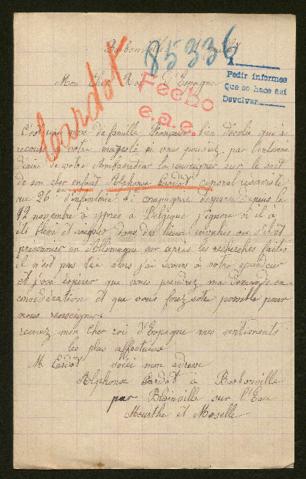 85336
Cardot
Fecho
e.a.e.
Pedir informes
Que se hace así
Devolver
Mon cher Roi d'Espagne
C'est un père de famille Français bien désolé que à
recours à votre majesté si vous pouvez par l'intermé
diaire de votre Ambassadeur le renseigner sur le sort
de son cher enfant Alphonse Cardot caporal réserviste
au 26e d'infanterie 4e compagnie disparu depuis le
12 novembre à Ypres à Belgique j'ignore où il a
été blessé et inspiré dans des lieux envahis ou s'il est
prisonnier en Allemagne car après les recherches faites
il n'est pas des alors j'ai recours à votre grandeur
et j'ose espérer que vous prendrez ma demande en
considération et que vous ferez votre possible pour
nous renseigner
recevez mon cher roi d'Espagne mes sentiments
les plus affectueux
M Cardot voici mon adresse
Alphonse Cardot à Barbonville
par Blainville sur l'Eau
Meurthe et Moselle